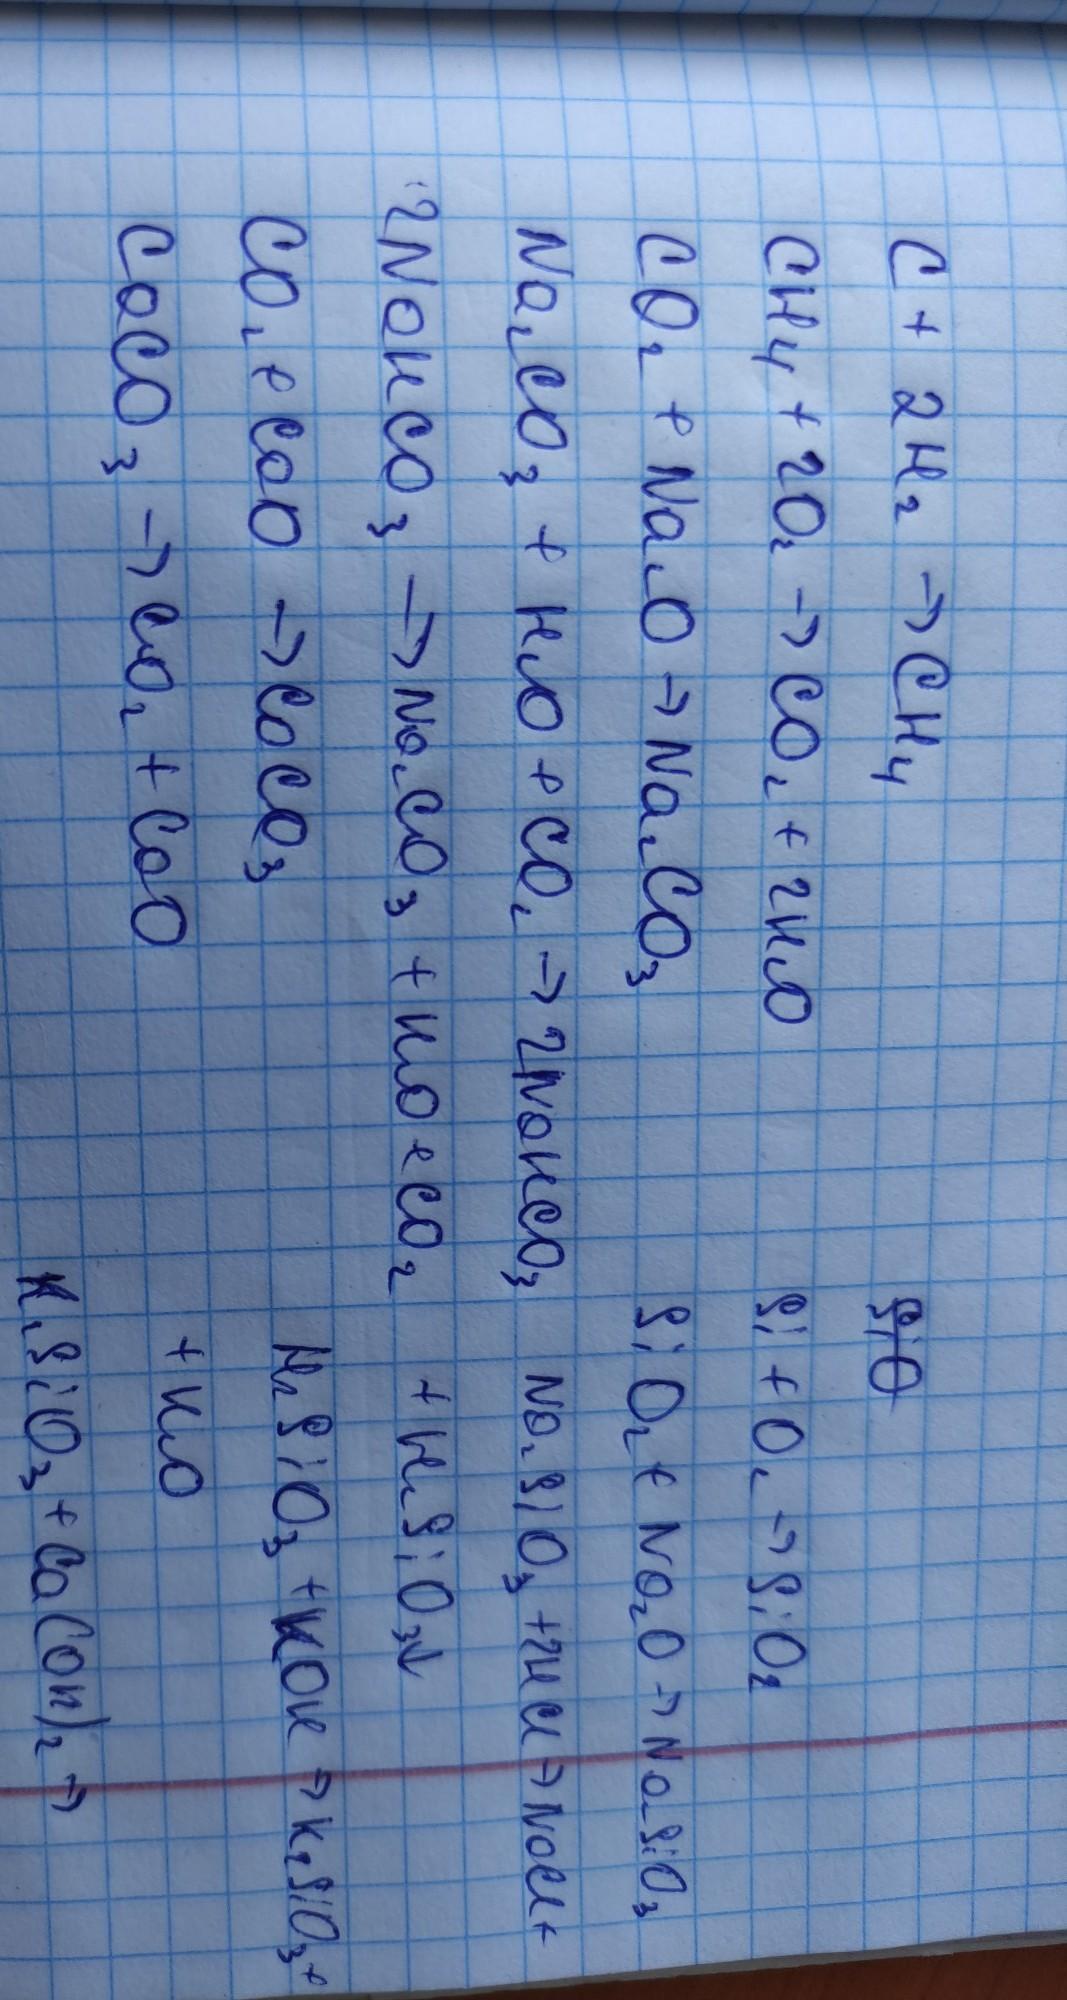 C + 2H₂ → CH₄
CH₄ + 2O₂ → CO₂ + 2H₂O
CO₂ + Na₂O → Na₂CO₃
Na₂CO₃ + H₂O + CO₂ → 2NaHCO₃
2NaHCO₃ → Na₂CO₃ + H₂O + CO₂
CO₂ + CaO → CaCO₃
CaCO₃ → CO₂ + CaO
SiO
Si + O₂ → SiO₂
SiO₂ + Na₂O → Na₂SiO₃
Na₂SiO₃ + 2HCl → NaCl +
+ H₂SiO₃↓
H₂SiO₃ + KOH → K₂SiO₃ +
+ H₂O
K₂SiO₃ + Ca(OH)₂ →